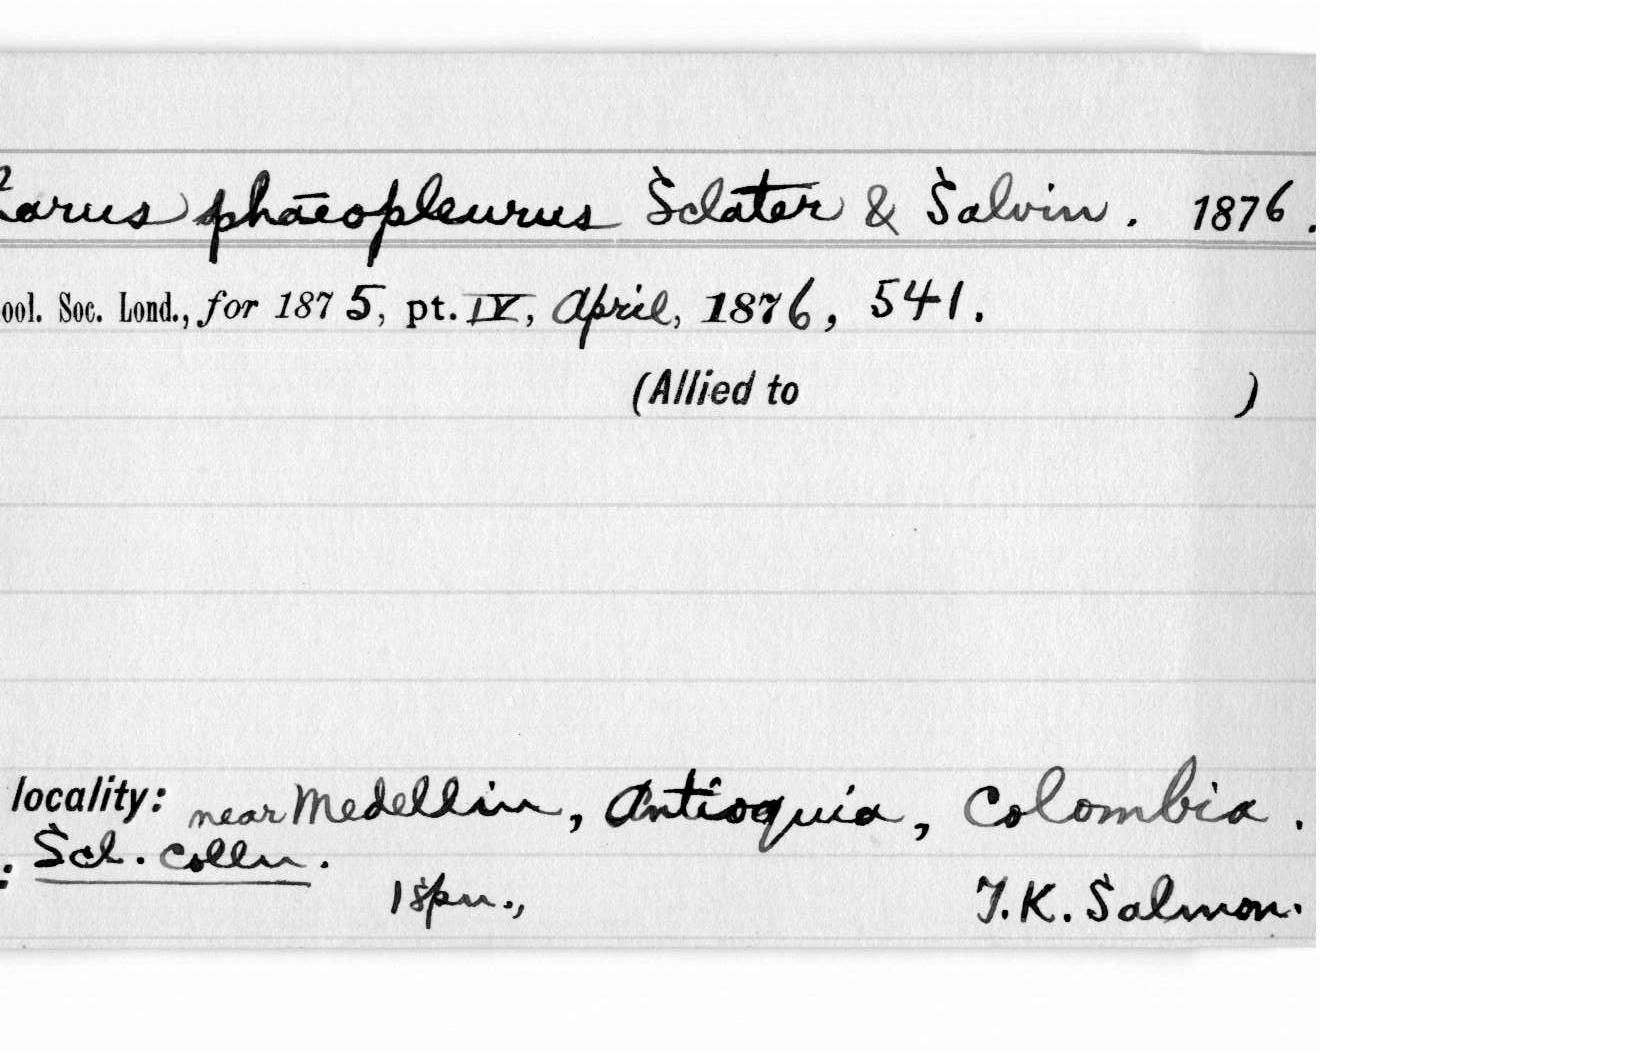 arus phaeopleurus Sclater & Salvin. 1876.
ool. Soc. Lond., for 1875, pt. IV, April, 1876, 541.
(Allied to )
locality: near Medellin, Antioquia, Colombia.
: Scl. Colln.
1 spn., T.K. Salmon.